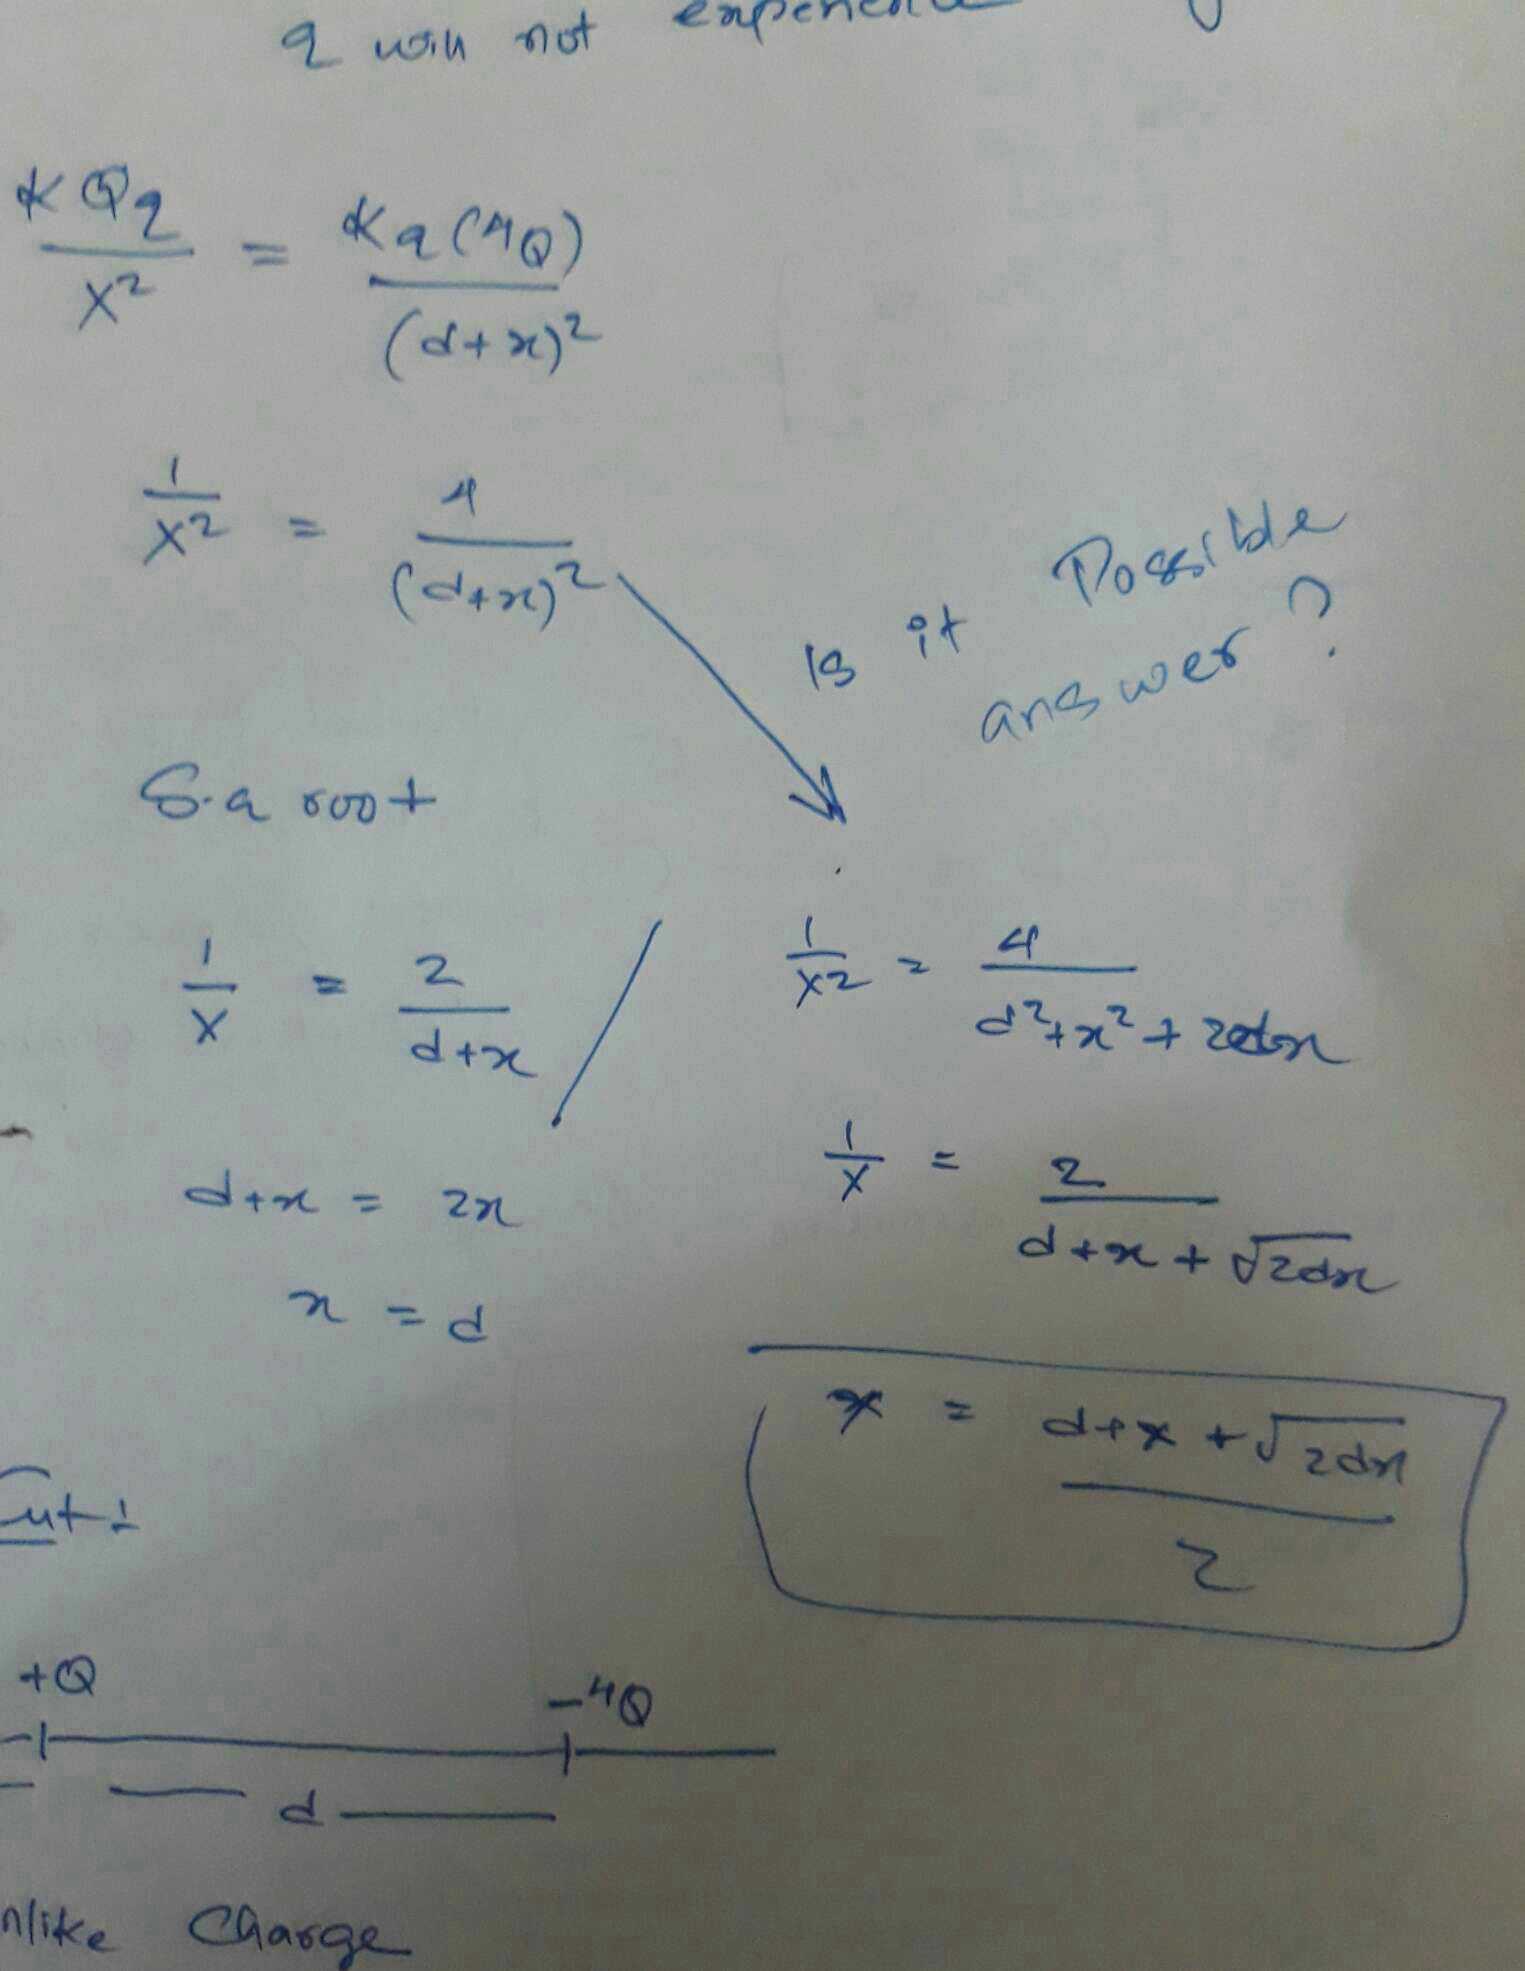 q will not
KQq / x² = Kq(4Q) / (d+x)²
1/x² = 4 / (d+x)²
Is it Possible
answer?
S.q root
1/x = 2 / d+x
d+x = 2x
x = d
1/x² = 4 / d²+x²+2dx
1/x = 2 / d+x+√2dx
x = d+x+√2dx / 2
+Q -4Q
d
Charge